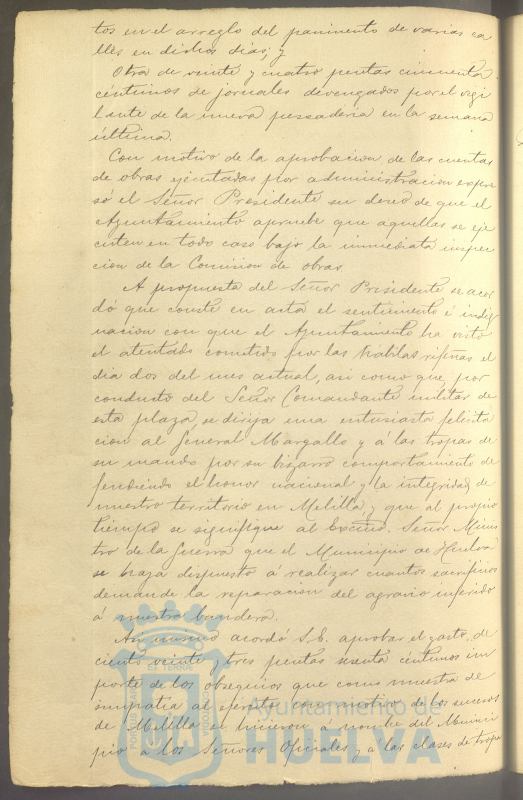 tos en el arreglo del pavimento de varias ca
lles en dichos dias; y
Otra de veinte y cuatro pesetas cincuenta
céntimos de jornales devengados por el vigi
lante de la nueva pescaderia en la semana
última.
Con motivo de la aprobacion de las cuentas
de obras ejecutadas por administracion expre
só el Señor Presidente su deseo de que el
Ayuntamiento apruebe que aquellas se eje
cuten en todo caso bajo la inmediata inspec
cion de la Comision de obras.
A propuesta del Señor Presidente se acor
dó que conste en acta el sentimiento é indig
nacion con que el Ayuntamiento ha visto
el atentado cometido por las Kabilas rifeñas el
dia dos del mes actual, asi como que por
conducto del Señor Comandante militar de
esta plaza, se dirija una entusiasta felicita
cion al General Margallo y á las tropas de
su mando por su bizarro comportamiento de
fendiendo el honor nacional y la integridad de
nuestro territorio en Melilla, y que al propio
tiempo se signifique al Excmo. Señor Minis
tro de la Guerra que el Municipio de Huelva
se haya dispuesto á realizar cuantos sacrificios
demande la reparacion del agravio inferido
á nuestra bandera.
Asi mismo acordó S.E. aprobar el gasto de
ciento veinte y tres pesetas sesenta céntimos im
porte de los obsequios que como muestra de
simpatia al ejército con motivo de los sucesos
de Melilla se hicieron á nombre del Munici
pio á los Señores Oficiales y á las clases de tropa
Ayuntamiento de
HUELVA